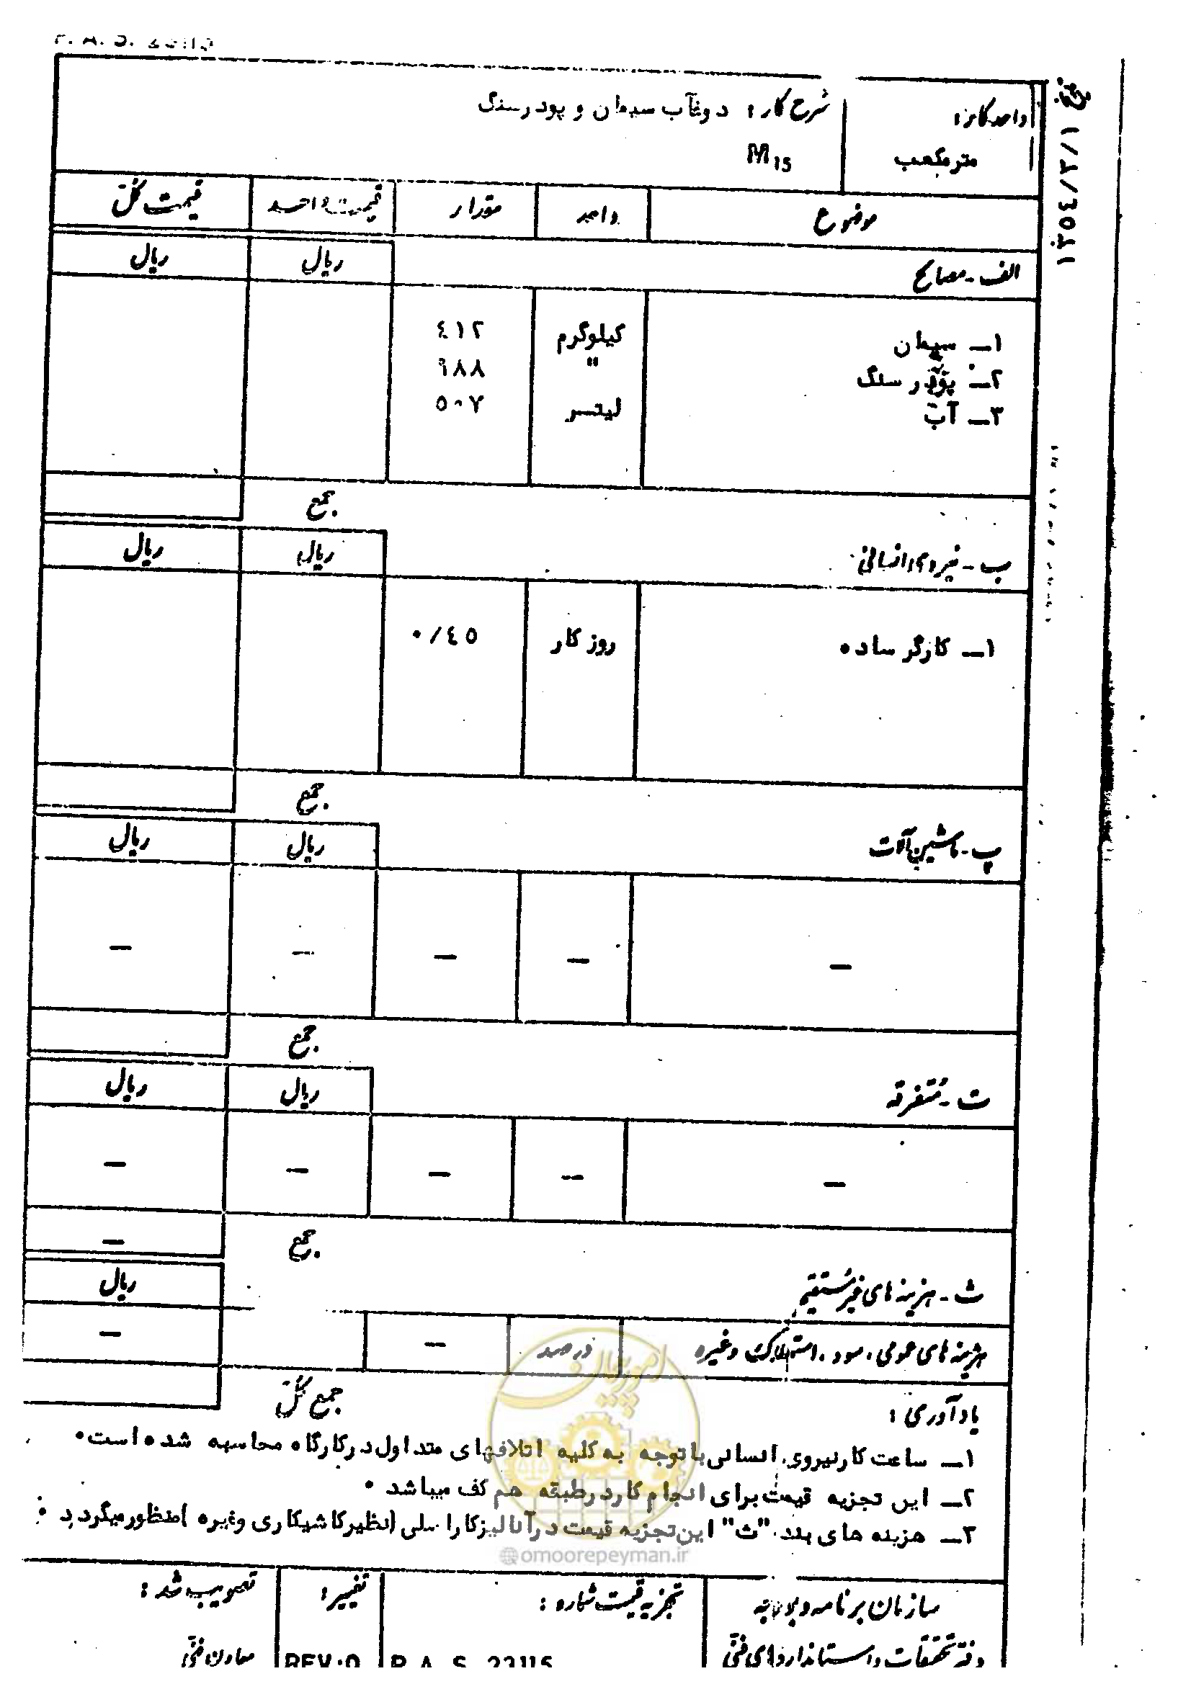 واحد کار:
مترمکعب
شرح کار: دوغآب سیمان و پودرسنگ
M15
موضوع واحد مقدار قیمت واحد قیمت کل
ریال ریال
الف - مصالح
۱ـ سیمان کیلوگرم ٤١٢
۲ـ پودر سنگ " ٩٨٨
۳ـ آب لیتر ٥٠٧
جمع
ریال ریال
ب - نیروی انسانی
۱ـ کارگر ساده روز کار ٠/٤٥
جمع
ریال ریال
پ - ماشین آلات
— — — — —
جمع
ریال ریال
ت - متفرقه
— — — — —
جمع —
ریال
ث - هزینه های غیر مستقیم
هزینه های عمومی، سود، استهلاک وغیره درصد — —
جمع کل
یادآوری:
۱ـ ساعت کارنیروی انسانی باتوجه به کلیه اتلافهای متداول در کارگاه محاسبه شده است.
۲ـ این تجزیه قیمت برای انجام کار در طبقه هم کف میباشد.
۳ـ هزینه های بند "ث" این تجزیه قیمت در آنالیز کار اصلی (نظیر کاشیکاری وغیره) منظور میگردد.
امور پیمان
@omoorepeyman.ir
سازمان برنامه و بودجه
دفتر تحقیقات و استانداردهای فنی
تجزیه قیمت شماره:
P. A. S. 23115
تغییر:
REV:0
تصویب شد:
معاون فنی